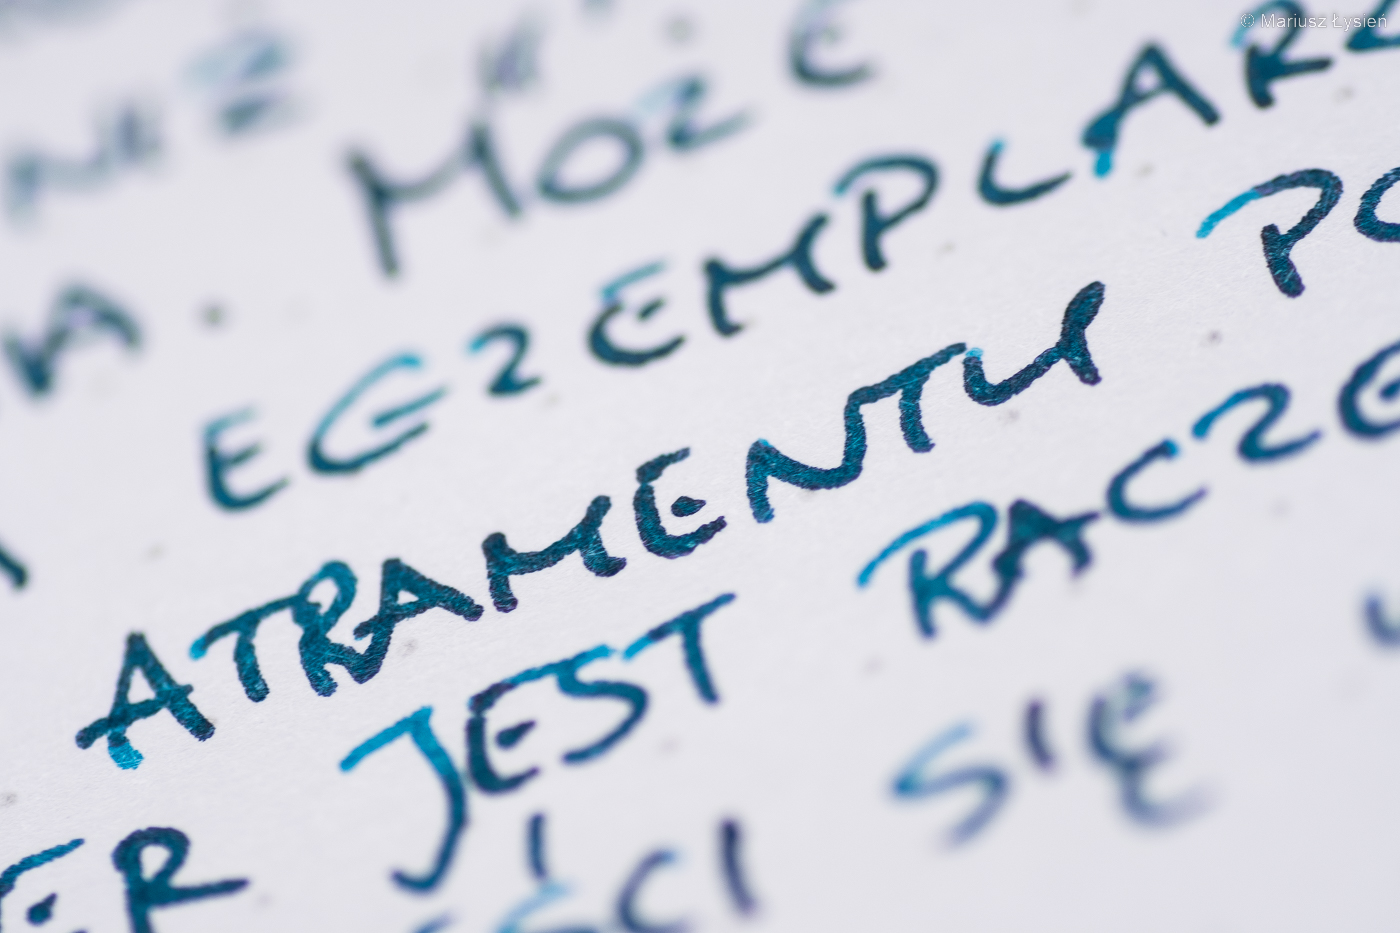 © Mariusz Łysień
MOŻE
EGZEMPLARZ
ATRAMENTY PO
ER JEST RACZE
ŚCI SIĘ